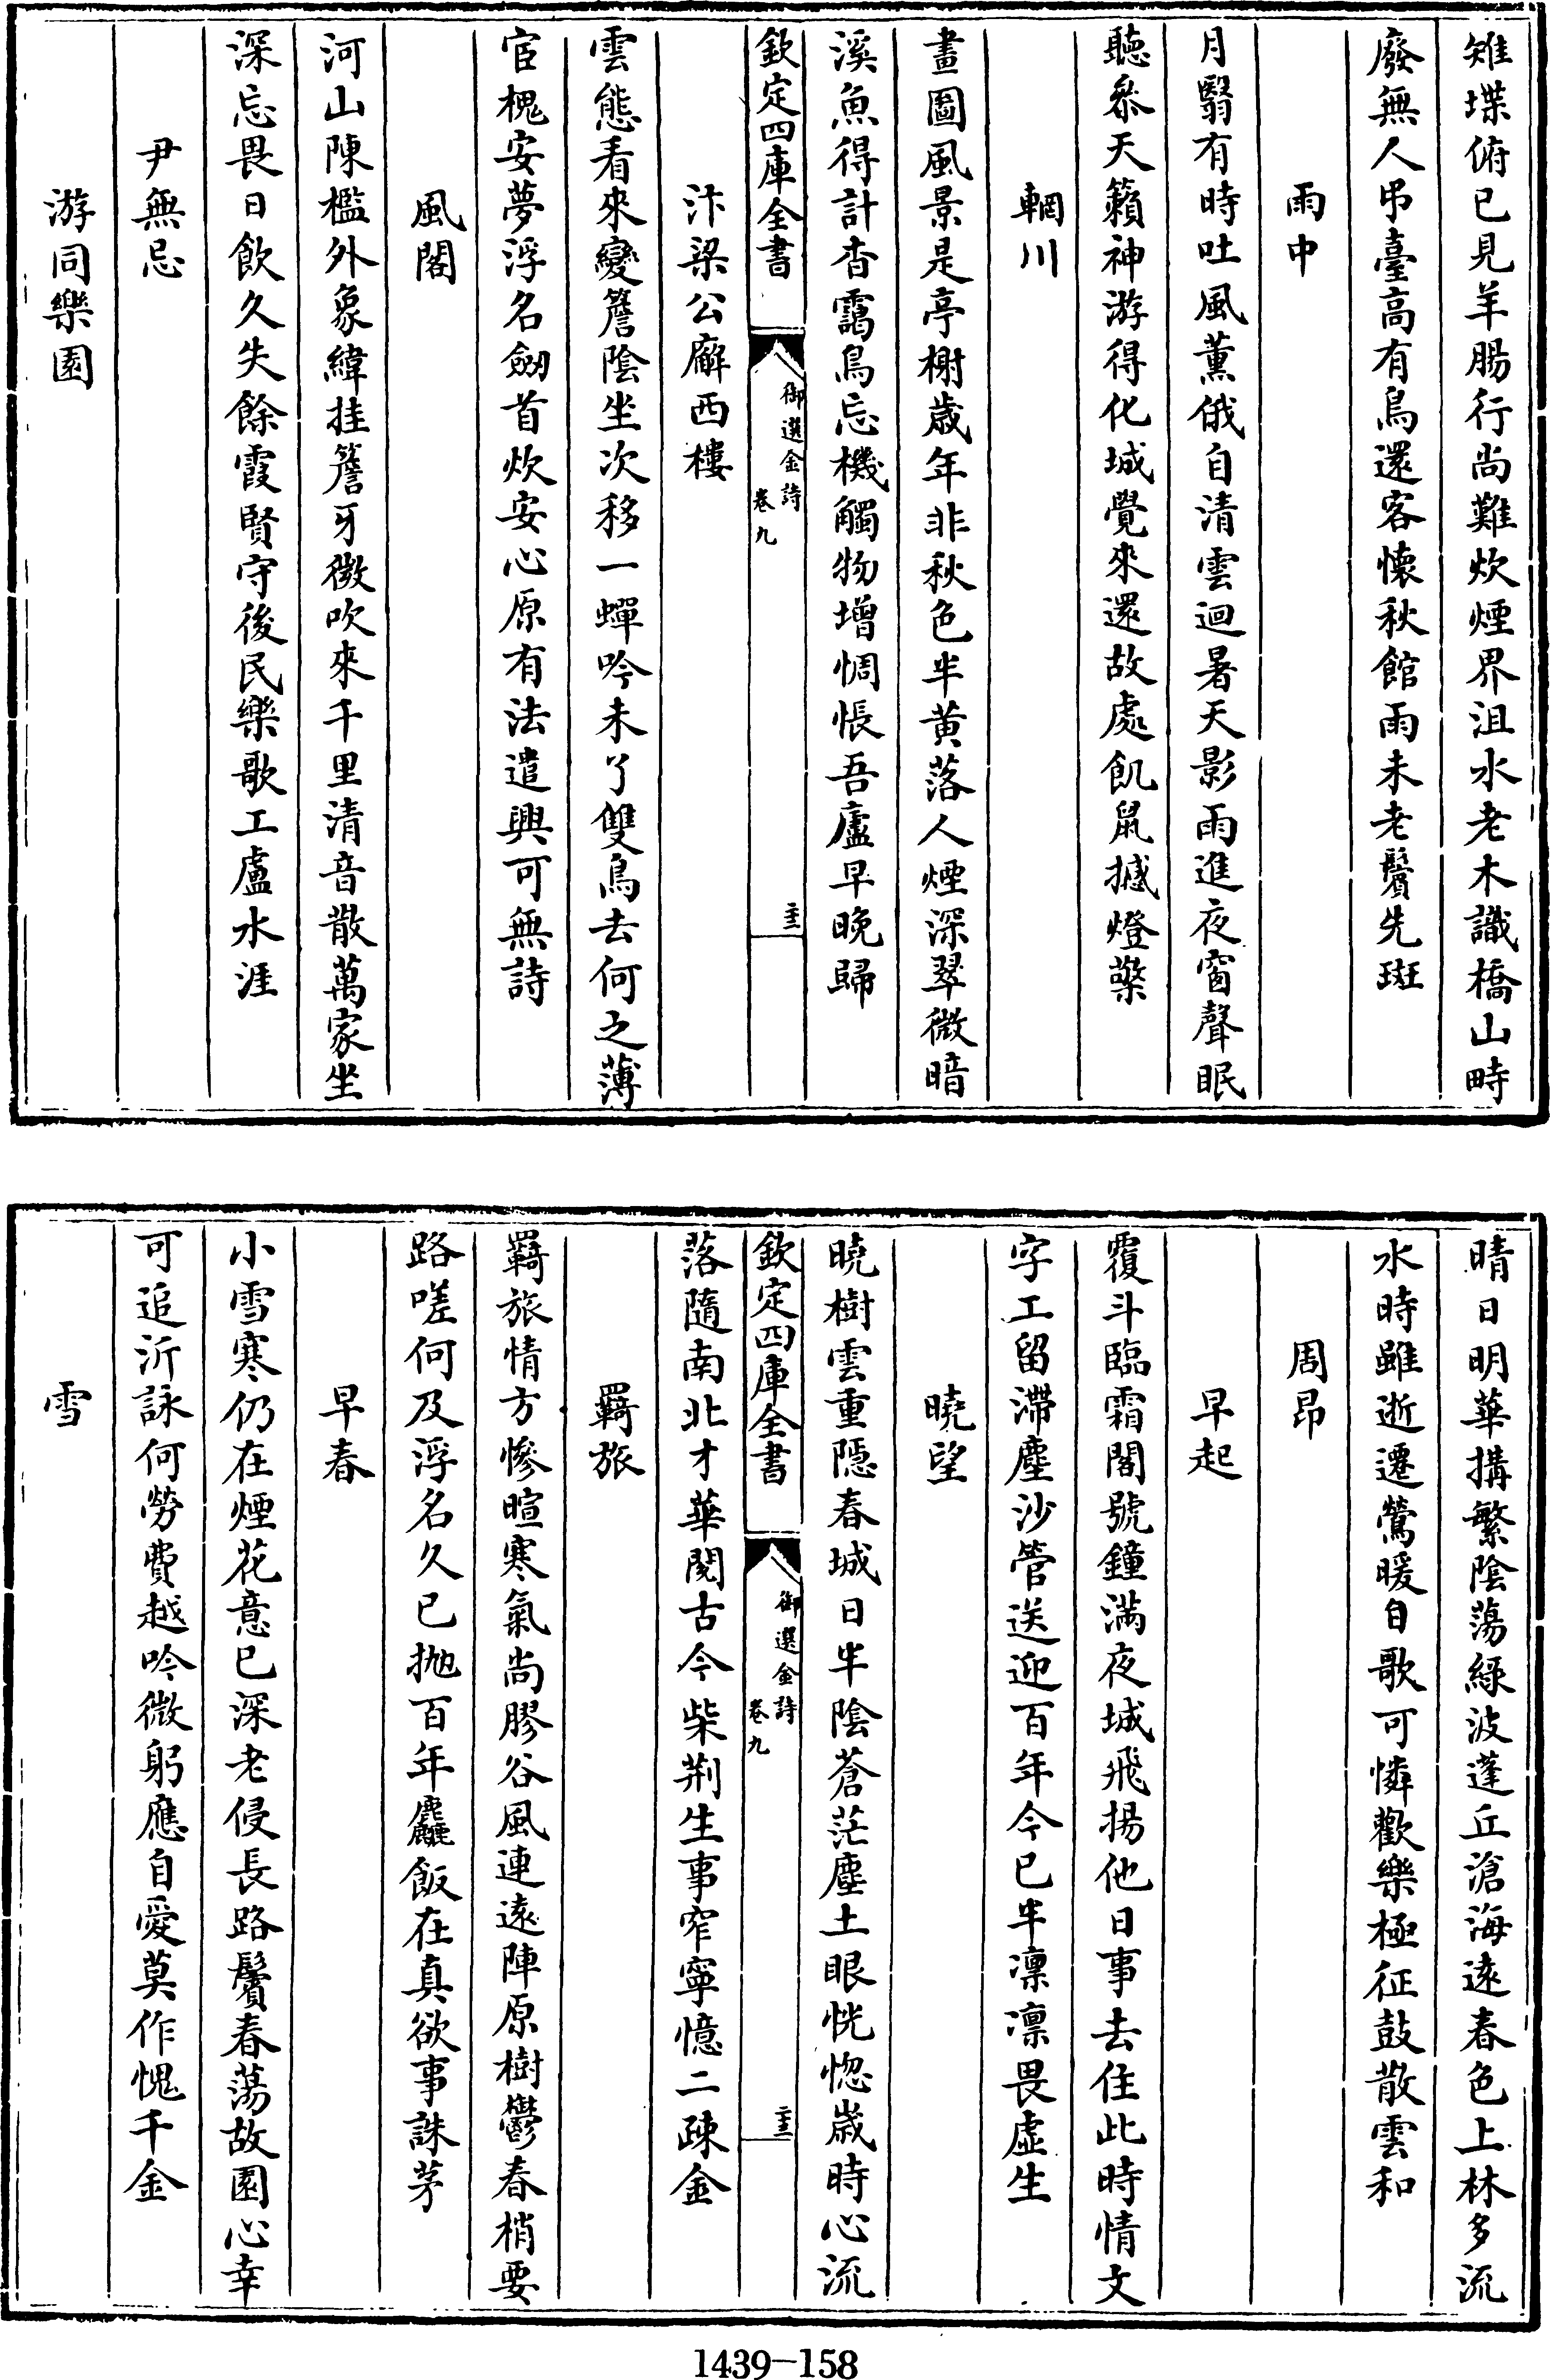 雉堞俯已見羊腸行尚難炊煙界沮水老木識橋山畤
廢無人弔臺高有鳥還客懷秋館雨未老鬢先斑
雨中
月翳有時吐風薰俄自清雲迴暑天影雨進夜窗聲眠
聽叅天籟神游得化城覺來還故處飢鼠撼燈檠
輞川
畫圖風景是亭榭歲年非秋色半黃落人煙深翠微暗
溪魚得計杳靄鳥忘機觸物增惆悵吾廬早晚歸
欽定四庫全書
御選金詩
卷九
主
汴梁公廨西樓
雲態看來變簷陰坐次移一蟬吟未了雙鳥去何之薄
宦槐安夢浮名劒首炊安心原有法遣興可無詩
風閣
河山陳檻外象緯挂簷牙微吹來千里清音散萬家坐
深忘畏日飲久失餘霞賢守後民樂歌工盧水涯
尹無忌
游同樂園
晴日明華搆繁陰蕩綠波蓬丘滄海遠春色上林多流
水時雖逝遷鶯暖自歌可憐歡樂極征鼓散雲和
周昂
早起
覆斗臨霜閣號鐘滿夜城飛揚他日事去住此時情文
字工留滯塵沙管送迎百年今已半凛凛畏虛生
曉望
曉樹雲重隱春城日半陰蒼茫塵土眼恍惚歲時心流
欽定四庫全書
御選金詩
卷九
主
落隨南北才華閱古今柴荆生事窄寧憶二疎金
羇旅
羇旅情方慘暄寒氣尚膠谷風連遠陣原樹鬱春梢要
路嗟何及浮名久已抛百年麤飯在真欲事誅茅
早春
小雪寒仍在煙花意已深老侵長路鬢春蕩故園心幸
可追沂詠何勞費越吟微躬應自愛莫作愧千金
雪
1439-158